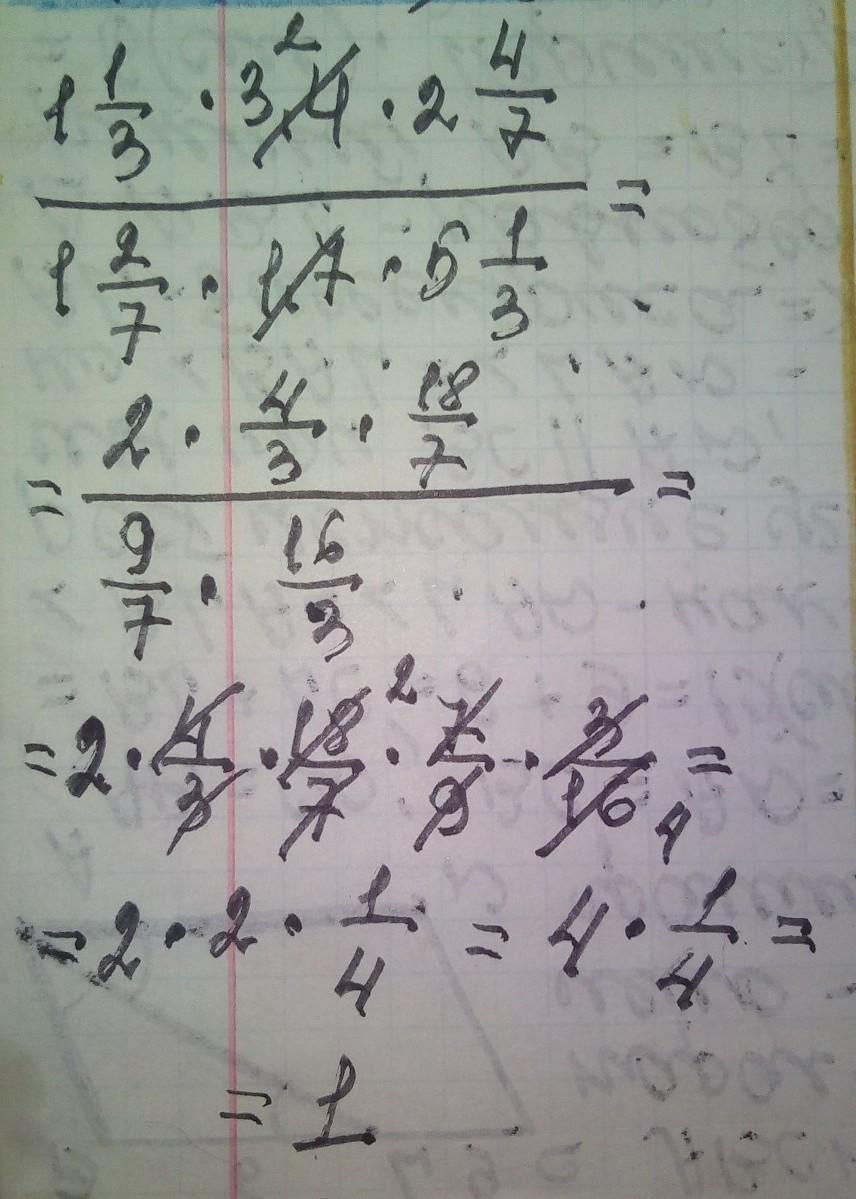 1 1/3 · 3,4 2 · 2 4/7
1 2/7 · 1,7 · 5 1/3 =
= 2 · 4/3 · 18/7
9/7 · 16/3 =
= 2 · 4/3 · 18/7 2 · 7/9 · 3/16 4 =
= 2 · 2 · 1/4 = 4 · 1/4 =
= 1